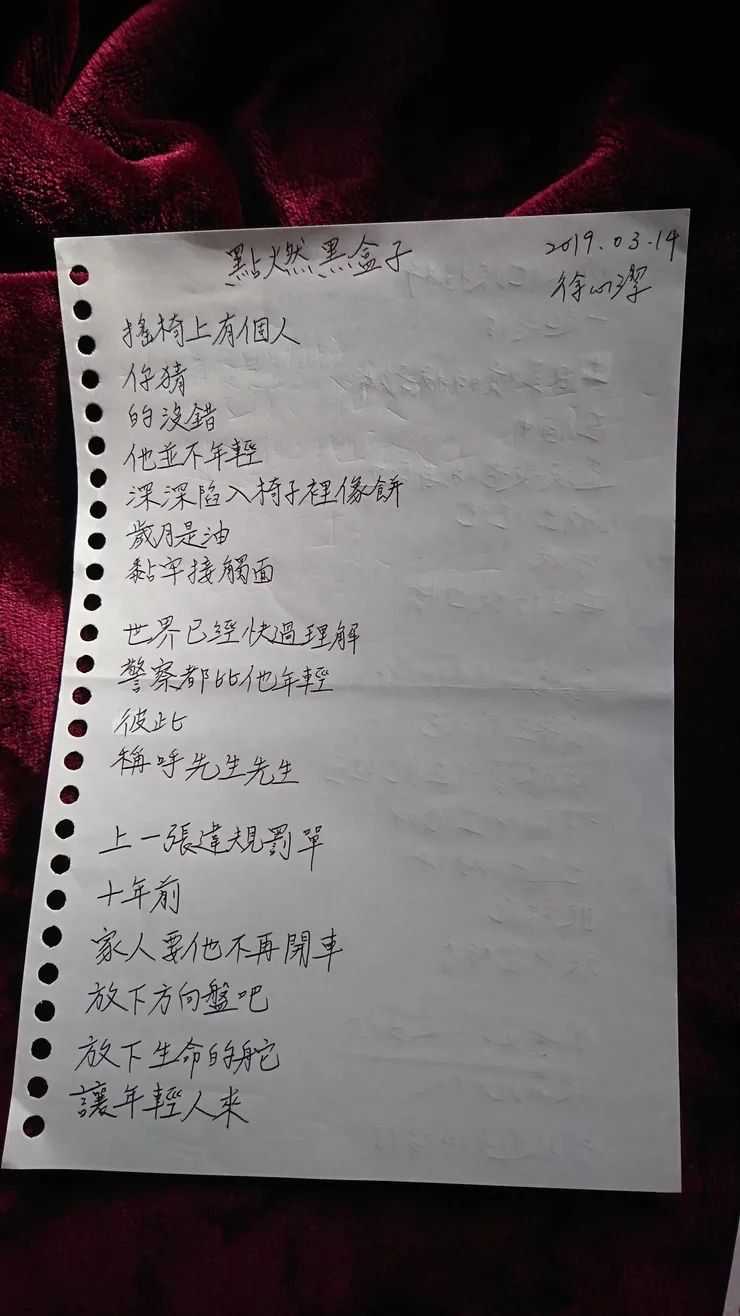 點燃黑盒子
2019.03.14
徐
搖椅上有個人
你猜
的沒錯
他並不年輕
深深陷入椅子裡像餅
歲月是油
黏牢接觸面
世界已經快過理解
警察都比他年輕
彼此
稱呼先生先生
上一張違規罰單
十年前
家人要他不再開車
放下方向盤吧
放下生命的舵
讓年輕人來